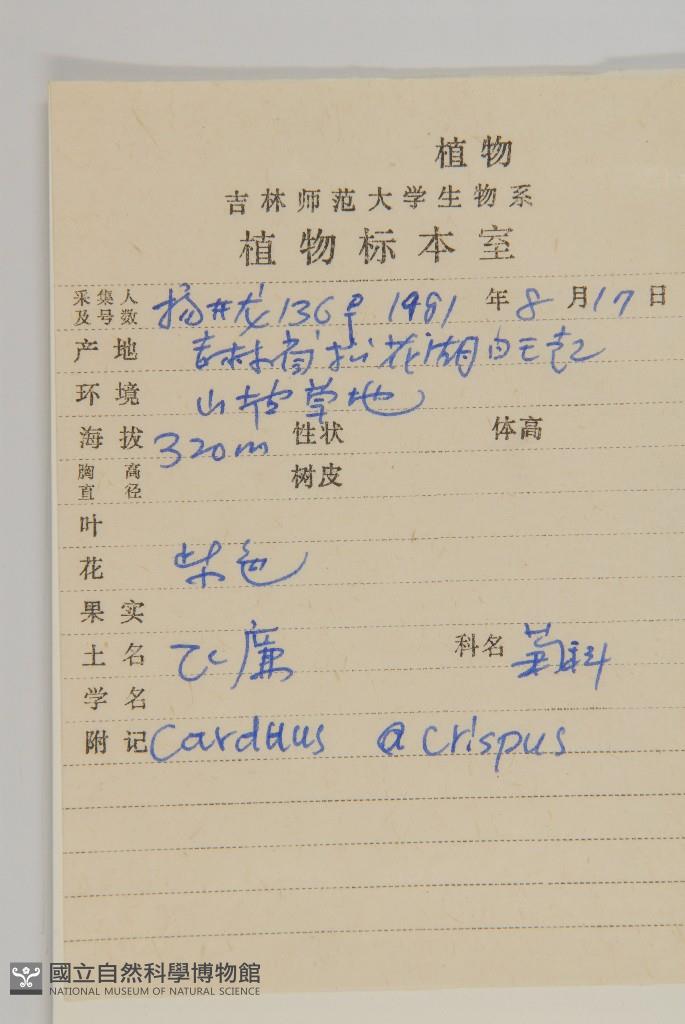 植物
吉林师范大学生物系
植物标本室
采集人及号数 杨井龙 136号 1981 年 8 月 17 日
产地 吉林省松花湖
环境 山坡草地
海拔 320m 性状 体高
胸高直径 树皮
叶
花 紫色
果实
土名 飞廉 科名 菊科
学名
附记 Carduus a crispus
國立自然科學博物館
NATIONAL MUSEUM OF NATURAL SCIENCE